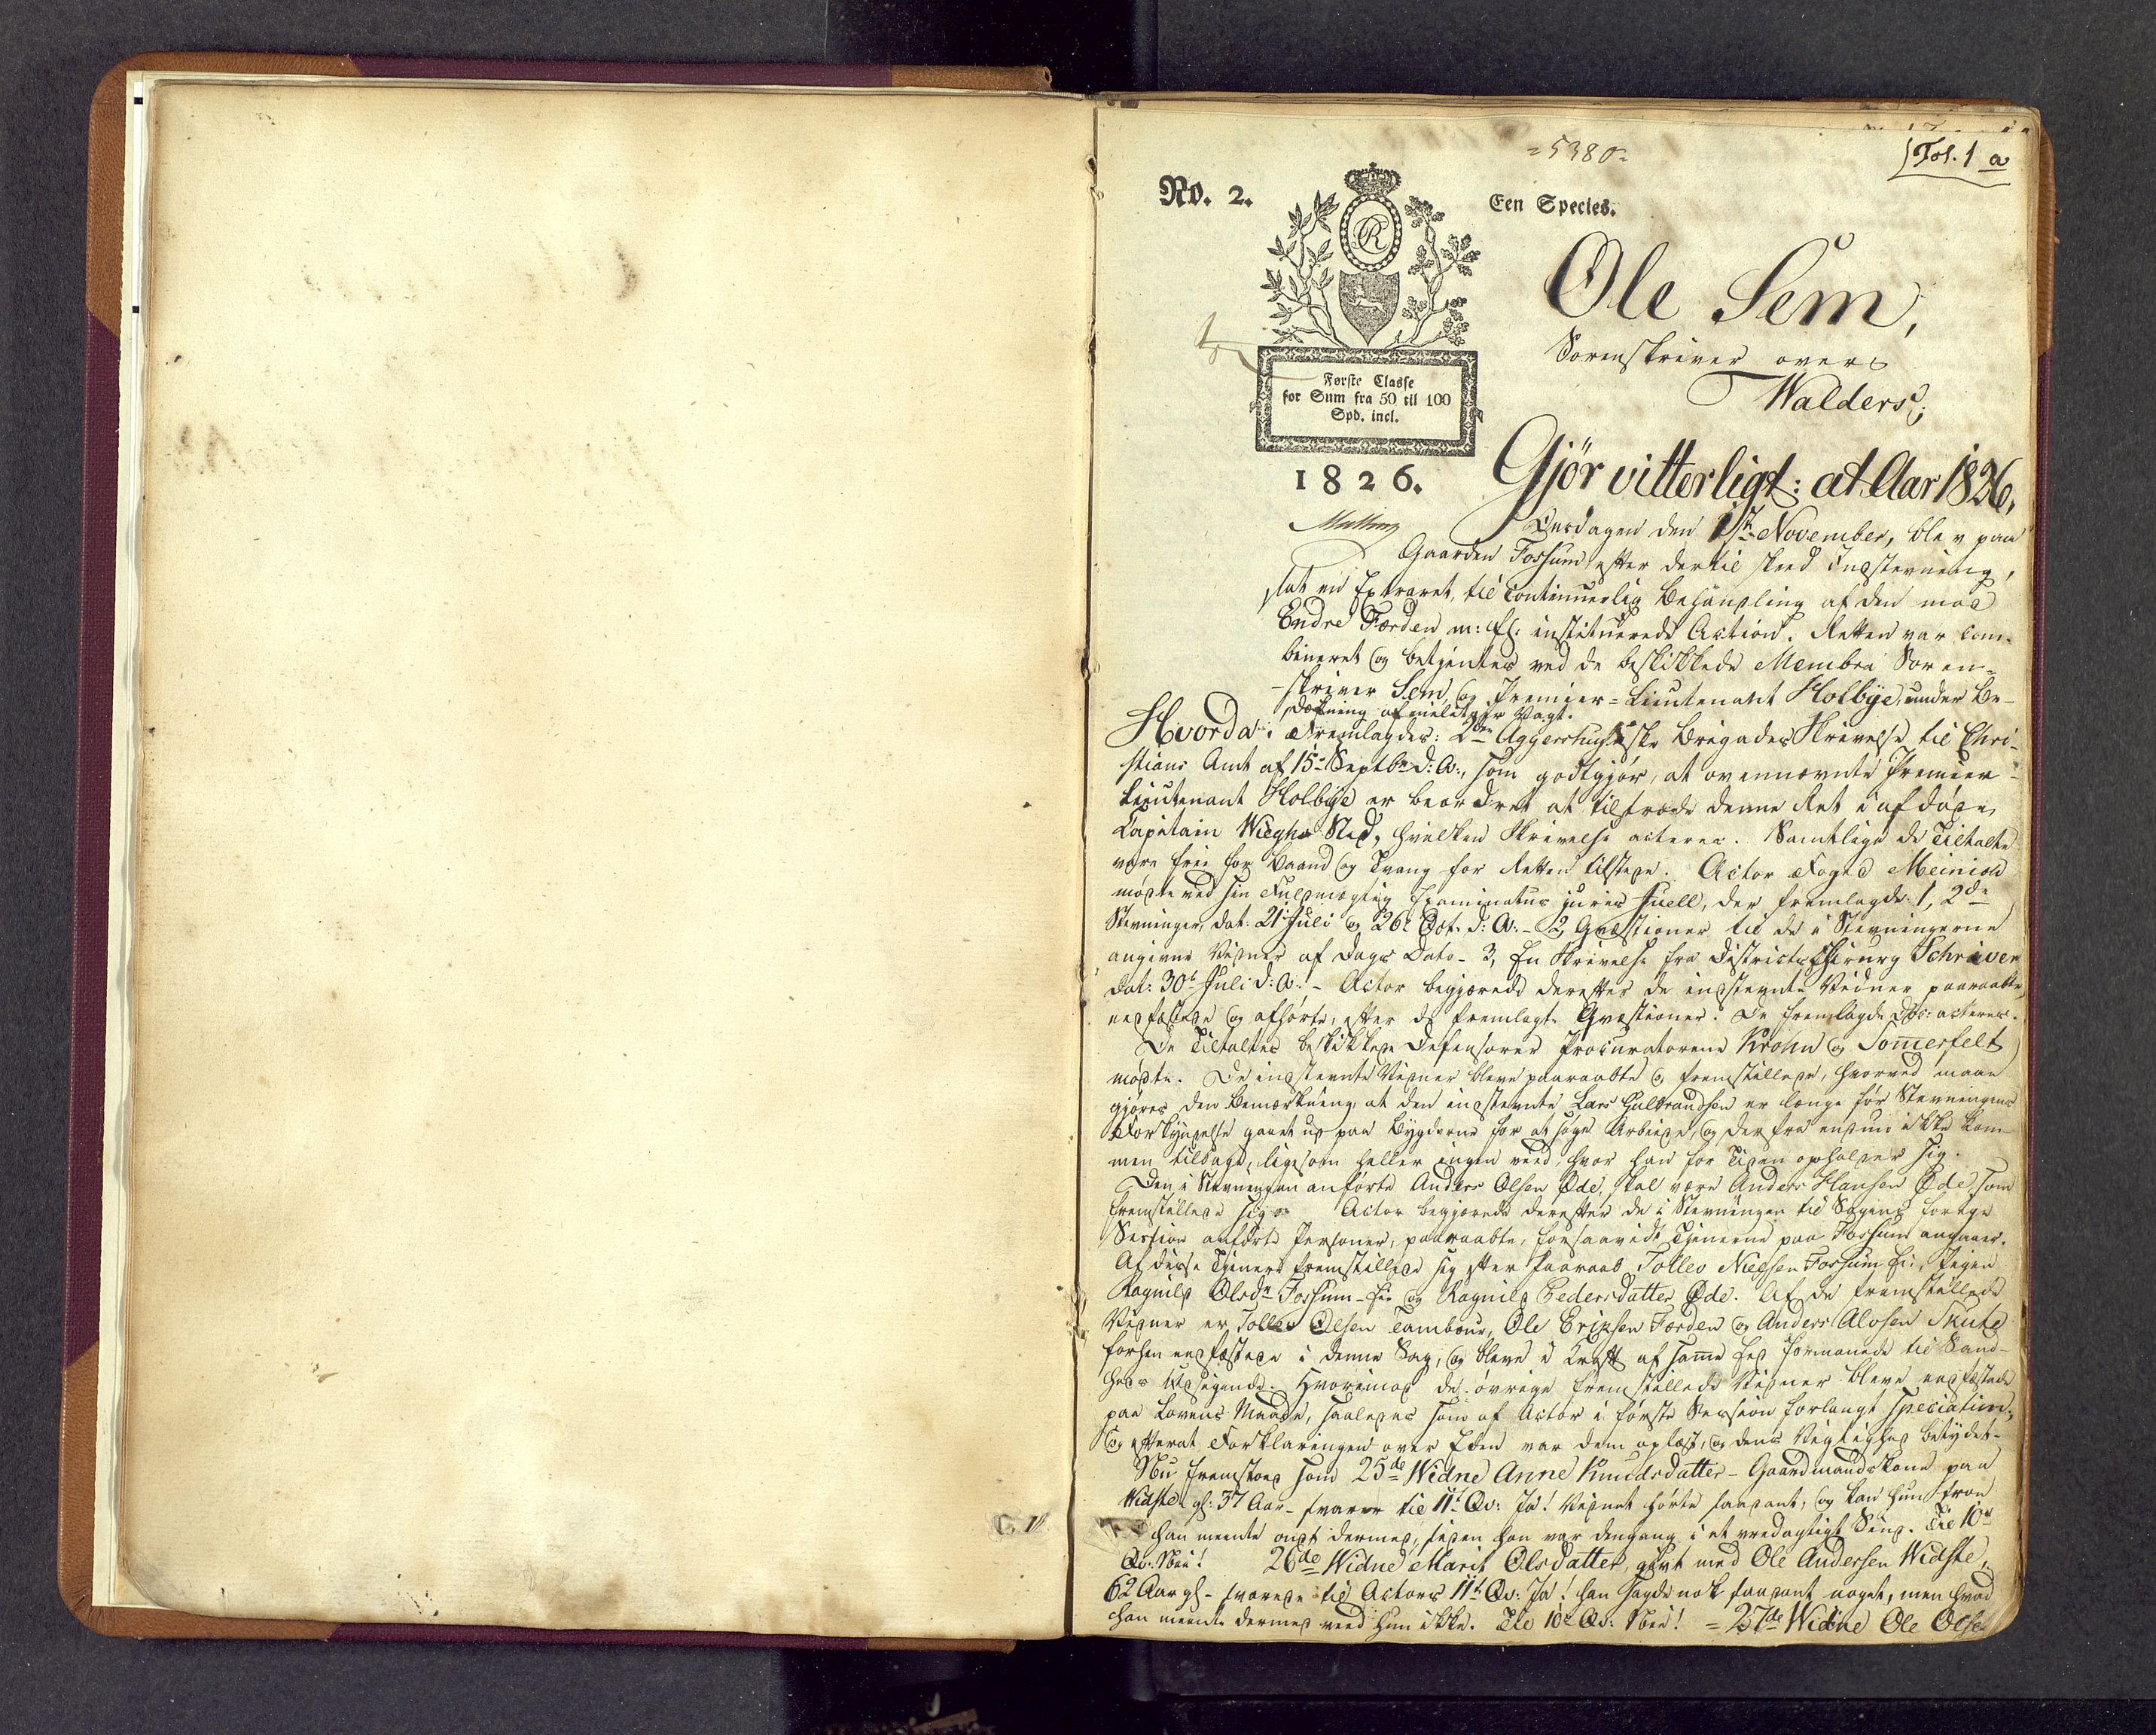 =5380=
Fol. 1 a
No. 2.
Een Species.
R
Første Classe
for Sum fra 50 til 100
Spd. incl.
1826.
Ole Sem,
Sorenskriver over
Walders;
Gjör vitterligt: at Aar 1826,
Onsdagen den 1ste November, blev paa
Gaarden Fossum efter dertil skeed Indstevning,
sat en Extraret, til continuerlig Behandling af den mod
Endre Færden m: fl: instituerede Action. Retten var com-
bineret og betjentes ved de beskikkede Membra Soren-
skriver Sem, og Premier-Lieutenant Holbÿe, under Be-
dækning af militair Vagt.
Hvorda: Fremlagdes: 2den Aggershusiske Brigades Skrivelse til Chri-
stians Amt af 15de Septbr d: A:, som godtgjör, at ovennævnte Premier-
Lieutenant Holbÿe er beordret at tiltræde denne Ret i afdöde
Capitain Wieghs Sted, hvilken Skrivelse acteres. Samtlige de Tiltalte
vare frie for Baand og Tvang for Retten tilstede. Actor Foged Meinich
mödte ved sin Fuldmægtig Examinatus juris Juell, der fremlagde: 1, 2de
Stevninger, dat: 21 Juli og 26de Oct. d: A: - 2, Qvæstioner til de i Stevningerne
angivne Vidner af Dags Dato - 3, En Skrivelse fra Districtschirurg Schriver
dat: 30te Juli d: A: - Actor begjærede derefter de indstevnte Vidner paaraabte,
eedfæstede og afhörte, efter de fremlagte Qvæstioner. De fremlagde Doc: acteres.
De Tiltaltes beskikkede Defensorer Procuratorerne Krohn og Sommerfelt
mödte. De indstevnte Vidner bleve paaraabte og fremstillede, hvorved maae
gjöres den Bemærkning, at den indstevnte Lars Gulbrandsen er længe för Stevningens
Forkyndelse gaaet ud paa Bygderne for at söge Arbeide, og derfra endnu ikke kom-
men tilbage, ligesom heller ingen veed, hvor han for Tiden opholder sig.
Den i Stevningen anförte Anders Olsen Öde, skal være Anders Hansen Öde, som
fremstillede sig. Actor begjærede derefter de i Stevningen til Sagens forrige
Session anförte Personer, paaraabte, forsaavidt Tjenerne paa Fossum angaaer.
Af disse Tjenere fremstillede sig efter Paaraab Tollev Nielsen Fossum Eie, Pigen
Ragnild Olsdr Fossum-Eie og Ragnild Pedersdatter Öde. Af de fremstillede
Vidner er Tollev Olsen Tambour, Ole Eriksen Færden og Anders Alvsen Skute
forhen eedfæstede i denne Sag, og bleve i Kraft af samme Eed formanede til Sand-
heds Udsigende. Hvorimod de övrige fremstillede Vidner bleve eedfæstede
paa Lovens Maade, saaledes som af Actor i förste Session forlangt speciatim,
og efterat Forklaringen over Eden var dem oplæst, og dens Vigtighed betydet.
Nu fremstod som 25de Widne Anne Knudsdatter - Gaardmandskone paa
Widste gl: 37 Aar - svarer til 11t Qv: Ja! Vidnet hörte saadant, og kan hun troe
han meente ondt dermed, siden han var dengang i et vredagtigt Sind. Til 10de
Qv: Nei! 26de Widne Marit Olsdatter, givt med Ole Andersen Widste,
62 Aar gl - svarede til Actors 11t Qv: Ja! han sagde nok saadant noget, men hvad
han meente dermed veed hun ikke. Til 10t Qv: Nei! = 27de Widne Ole Olsen